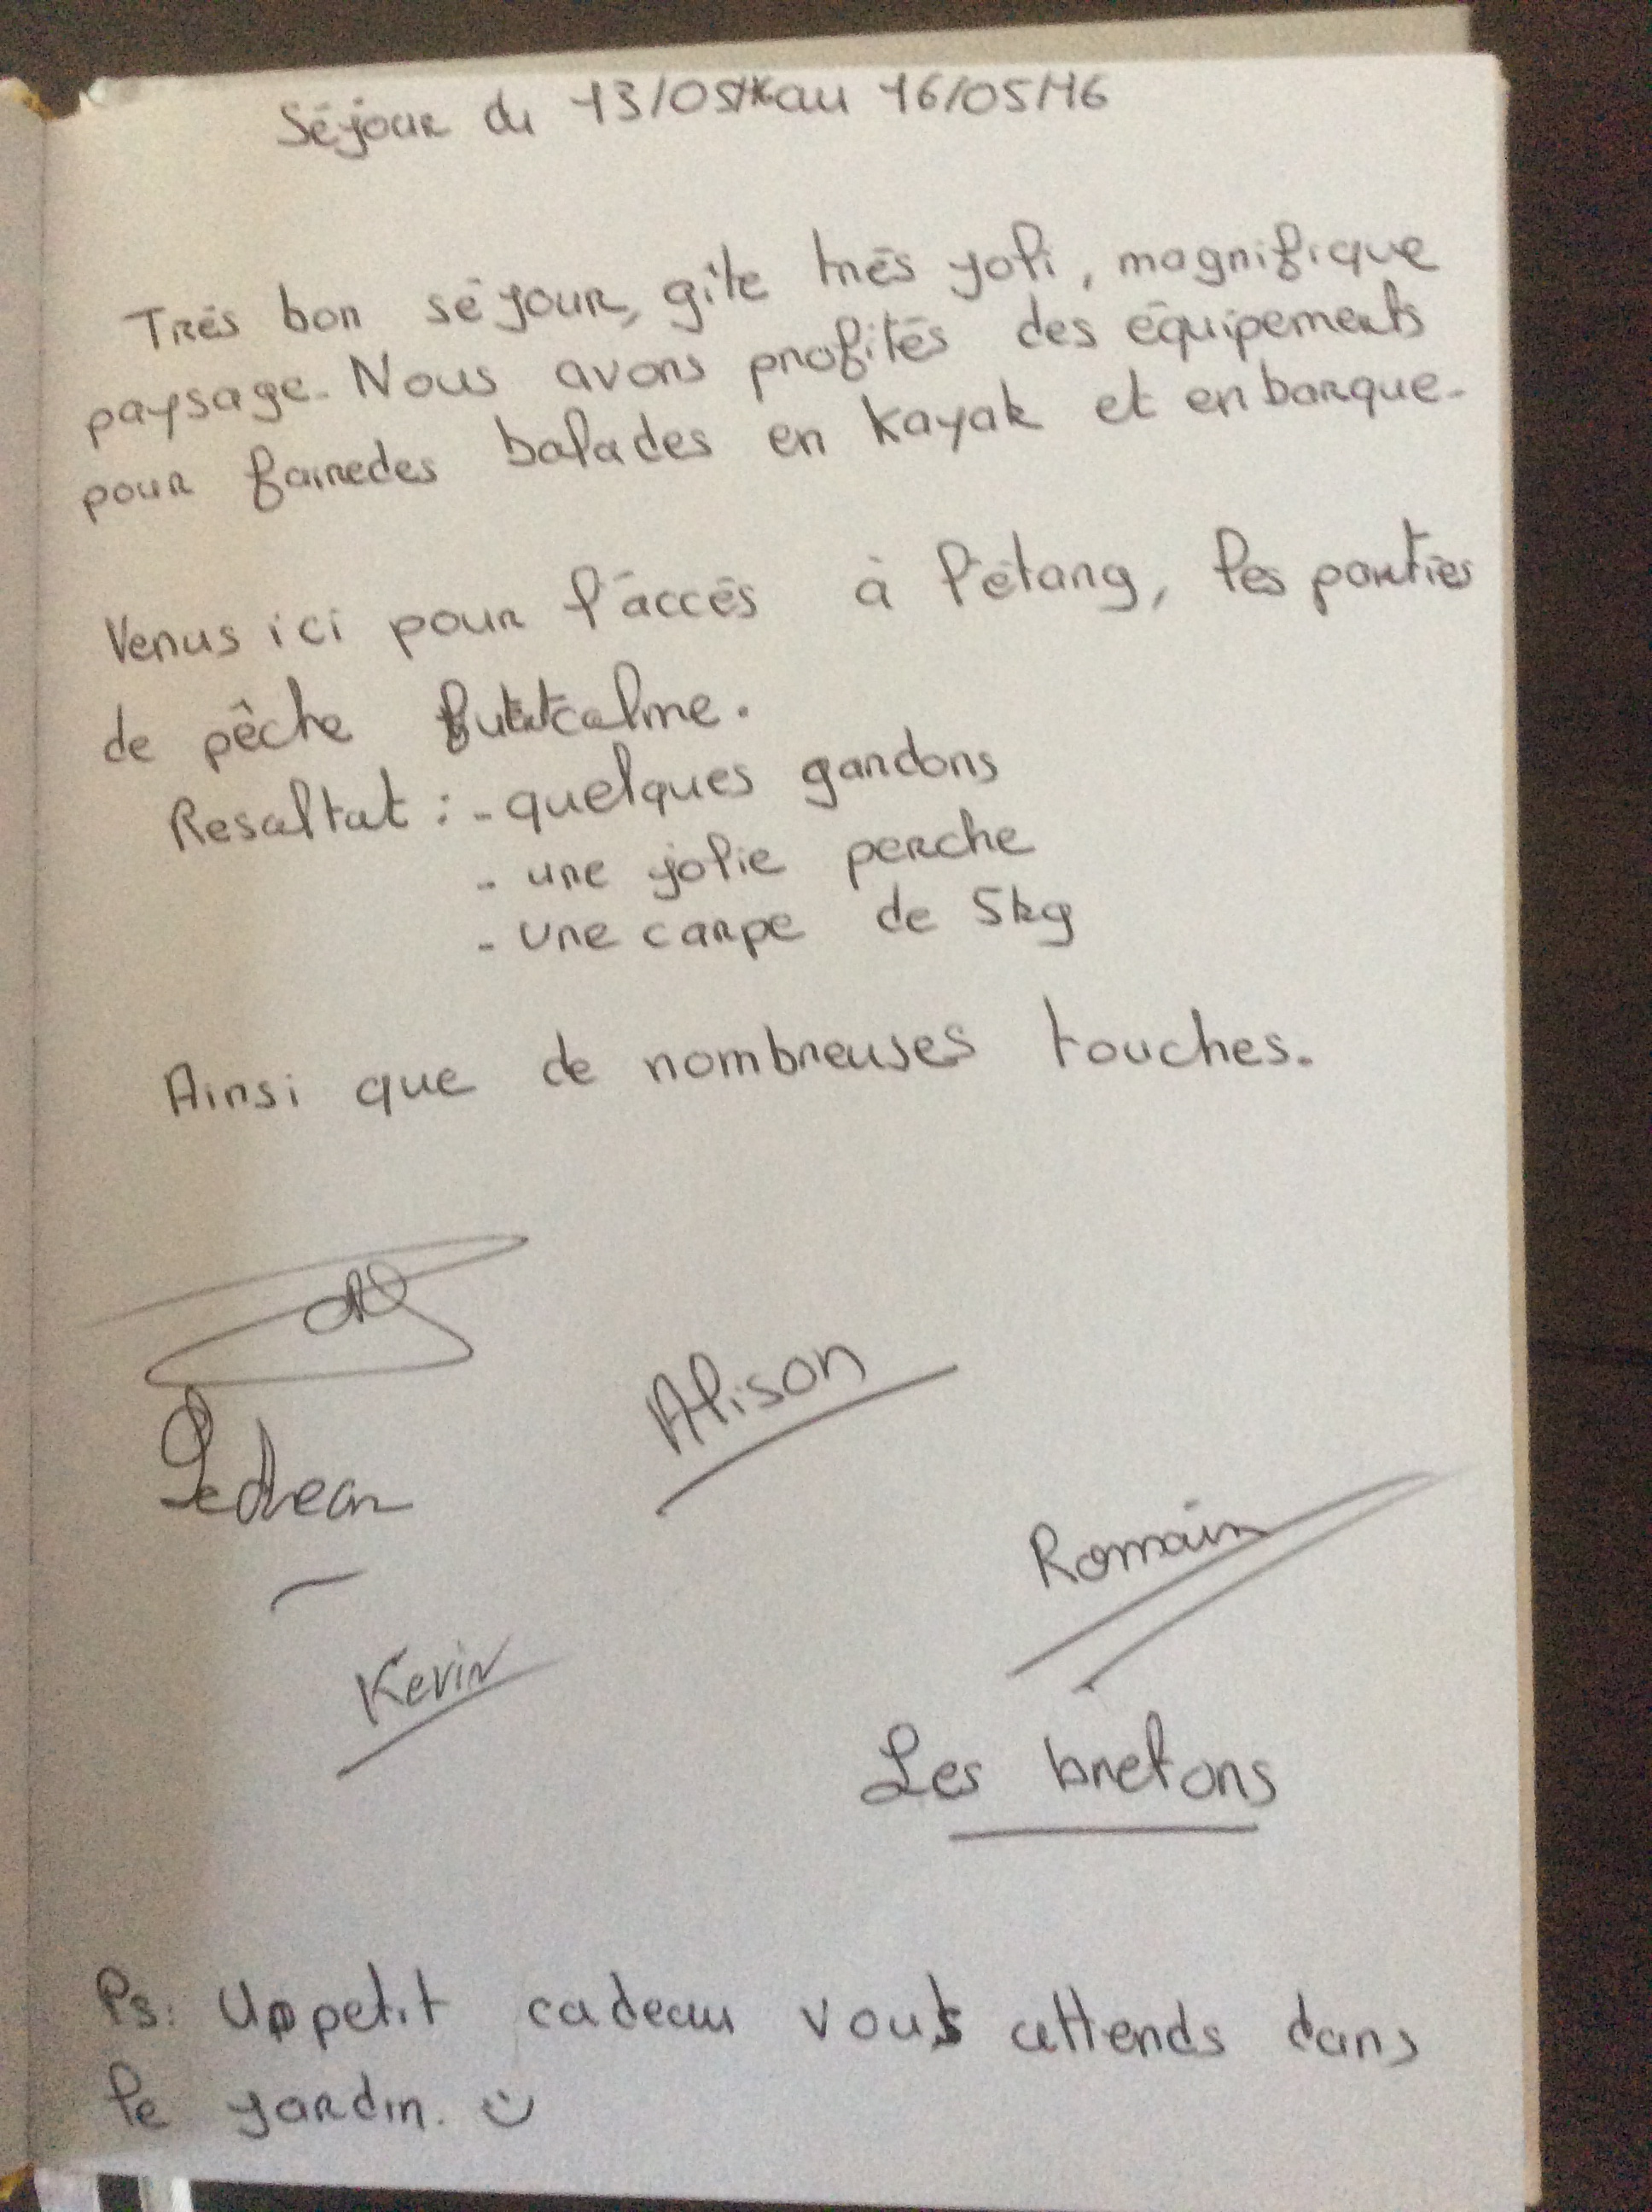 Séjour du 13/05/16 au 16/05/16
Très bon séjour, gîte très joli, magnifique
paysage. Nous avons profités des équipements
pour faire des balades en kayak et en barque.
Venus ici pour l'accès à l'étang, les parties
de pêche fut calme.
Resultat : - quelques gardons
- une jolie perche
- une carpe de 5kg
Ainsi que de nombreuses touches.
Alison
Romain
Kevin
Les bretons
Ps: Un petit cadeau vous attends dans
le jardin. :)